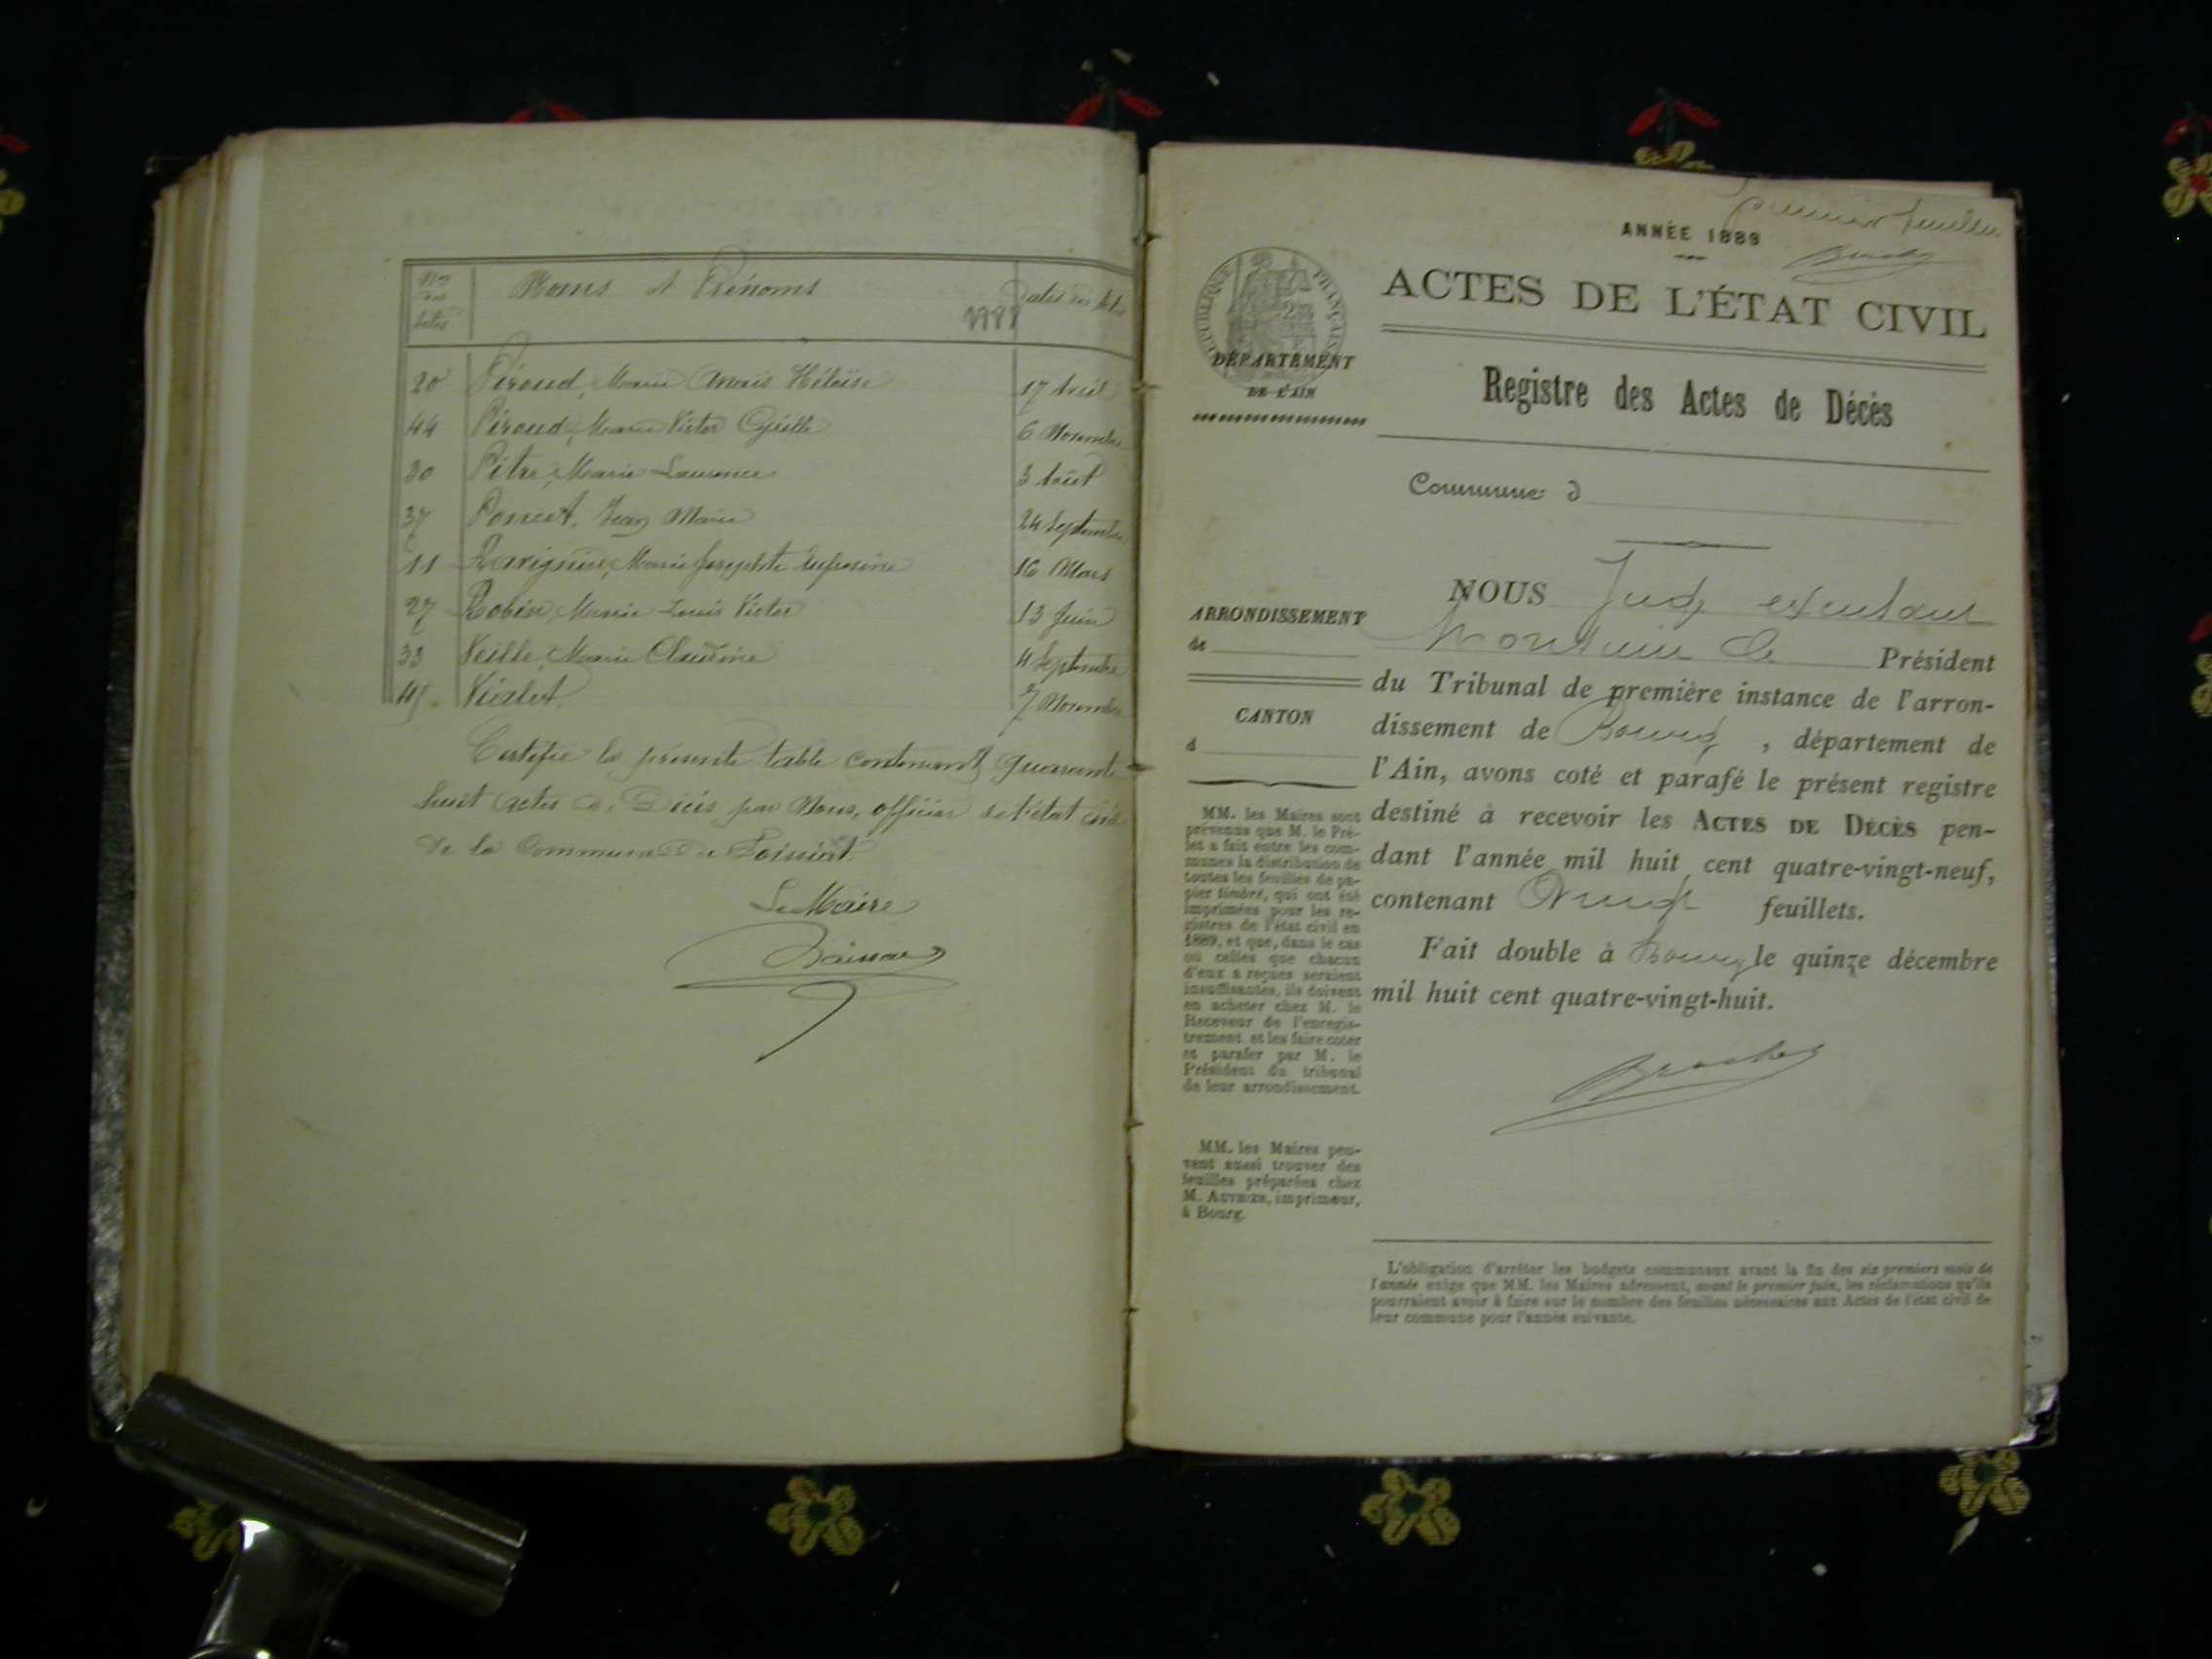 Nos des Actes
Noms et Prénoms
1888
Dates des Actes
20 Péroud, Marie Anaïs Héloïse 17 Avril
44 Péroud, Marie Victor Cyrille 6 Novembre
30 Pitre, Marie Laurence 3 Août
37 Poncet, Jean Marie 24 Septembre
11 Marie Josephte 16 Mars
27 Robin, Marie Louis Victor 13 Juin
33 Veille, Marie Claudine 4 Septembre
45 Vialet 7 Novembre
Certifié la présente table contenant quarante
huit actes de Décès par Nous, officier de l'état civil
de la Commune de
Le Maire
Premier feuillet
ANNÉE 1889
ACTES DE L'ÉTAT CIVIL
RÉPUBLIQUE FRANÇAISE
DÉPARTEMENT
DE L'AIN
Registre des Actes de Décès
Commune d
NOUS Juge
ARRONDISSEMENT
de
Monsieur le Président
du Tribunal de première instance de l'arron-
dissement de Bourg, département de
CANTON
d
l'Ain, avons coté et parafé le présent registre
destiné à recevoir les ACTES DE DÉCÈS pen-
dant l'année mil huit cent quatre-vingt-neuf,
contenant feuillets.
Fait double à Bourg le quinze décembre
mil huit cent quatre-vingt-huit.
MM. les Maires sont
prévenus que M. le Pré-
fet a fait entre les com-
munes la distribution de
toutes les feuilles de pa-
pier timbré, qui ont été
imprimées pour les re-
gistres de l'état civil en
1889, et que, dans le cas
où celles que chacun
d'eux a reçues seraient
insuffisantes, ils doivent
en acheter chez M. le
Receveur de l'enregis-
trement, et les faire coter
et parafer par M. le
Président du tribunal
de leur arrondissement.
MM. les Maires peu-
vent aussi trouver des
feuilles préparées chez
M. AUTHIER, imprimeur,
à Bourg.
L'obligation d'arrêter les budgets communaux avant la fin des six premiers mois de
l'année exige que MM. les Maires adressent, avant le premier juin, les réclamations qu'ils
pourraient avoir à faire sur le nombre des feuilles nécessaires aux Actes de l'état civil de
leur commune pour l'année suivante.